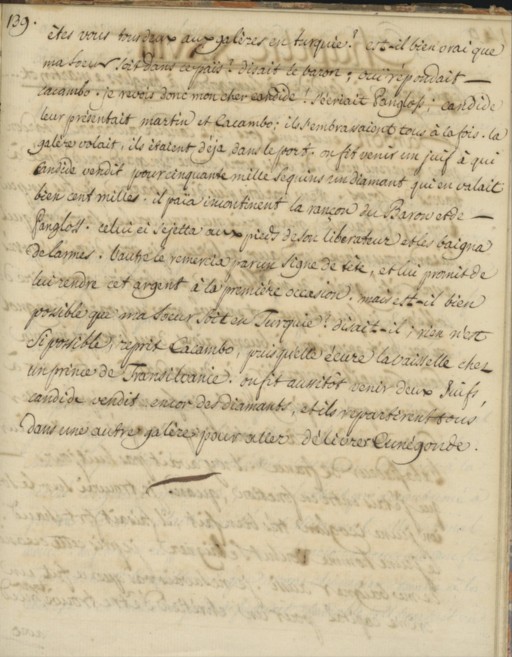 139.
êtes vous tous deux aux galères en turquie? est-il bien vrai que
ma soeur soit dans ce païs? disait le baron; oui répondait
cacambo. je revois donc mon cher candide! s'écriait Pangloss; candide
leur présentait martin et Cacambo; ils s'embrassaient tous à la fois. la
galère volait, ils étaient déja dans le port. on fit venir un juif à qui
candide vendit pour cinquante mille sequins un diamant qui en valait
bien cent milles. il paia incontinent la rançon du Baron et de
Pangloss. celui ci se jetta aux pieds de son liberateur et les baigna
de larmes. l'autre le remercia par un signe de tête, et lui promit de
lui rendre cet argent à la première occasion. mais est-il bien
possible que ma soeur soit en Turquie? disait-il; rien n'est
si possible, reprit Cacambo, puis quelle écure la vaisselle chez
un prince de Transilvanie. on fit aussitôt venir deux Juifs,
candide vendit encor des diamants, et ils repartirent tous
dans une autre galère pour aller délivrer Cunégonde.